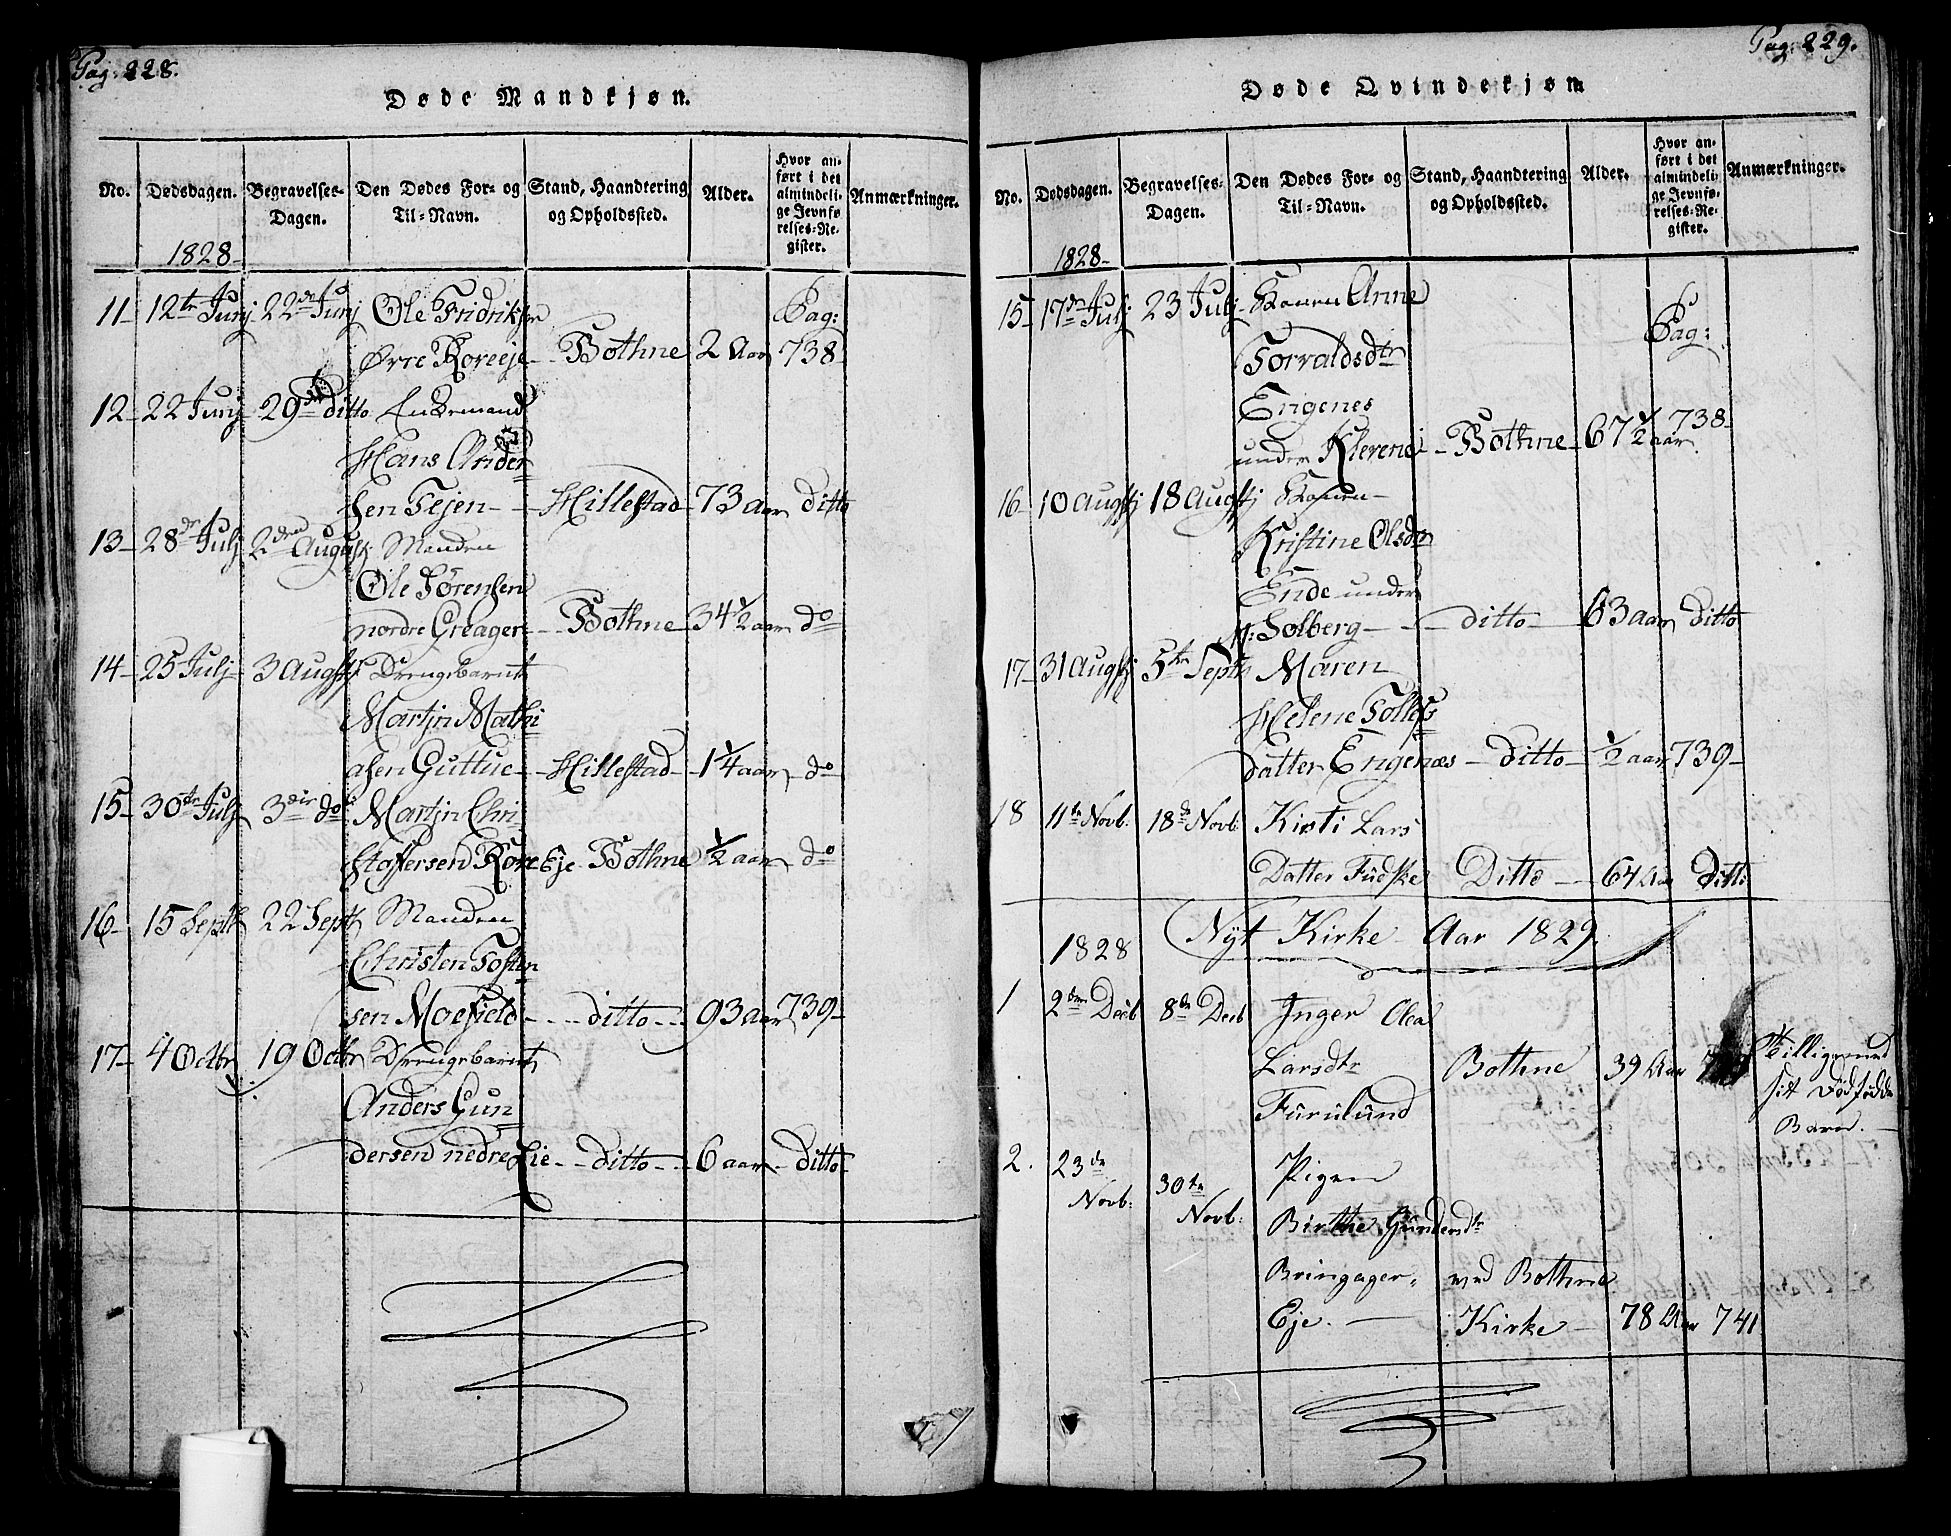 Pag: 228.
Døde Mandkjøn.
No. Dødsdagen. Begravelses-Dagen. Den Dødes For- og Til-Navn. Stand, Haandtering og Opholdssted. Alder. Hvor anført i det almindelige Jevnførelses-Register. Anmærkninger.
1828-
11- 12te Junj 22de Junj Ole Fridriks Pag:
Øvre Kore eje- Bothne 2 Aar 738-
12- 22 Junj 29de ditto Enkemand
Hans Ander
sen Tejen- Hillestad- 73 aar ditto
13- 28de Julj 2den August Manden
Ole Sørensen
nordre Greager- Bothne 34 1/2 aar do
14- 25 Julj 3 Augstj Drengebarnet
Martjn Mathi
asen Guttue- Hillestad- 1 1/4 aar do
15- 30te Julj 3die do Martjn Chri
stoffersen Kore Eje Bothne 1/2 aar do
16- 15 Septb 22 Septb Manden
Christen Tosten
sen Moefield- ditto 93 aar 739-
17- 4 Octbr 19 Octbr Drengebarnet
Anders Gun
dersen nedre Lie- ditto 6 aar ditto-
Pag: 229.
Døde Qvindekjøn
No. Dødsdagen. Begravelses-Dagen. Den Dødes For- og Til-Navn. Stand, Haandtering og Opholdssted. Alder. Hvor anført i det almindelige Jevnførelses-Register. Anmærkninger.
1828-
15- 17de Julj 23 Julj Konen Anne
Torvaldsdtr Pag:
Engenes
under Klevene- Bothne- 67 1/2 aar 738-
16- 10 Augstj 18 Augstj Konen-
Kristine Olsdtr
Ende under
M: Solberg- ditto- 63 aar ditto
17- 31 Augstj 5te Septb Maren
Helene Tollefs
datter Engenæs- ditto- 1/2 aar 739-
18 11te Novb. 18de Novb. Kirsti Lars
Datter Fudske Ditto 64 Aar Ditto
1828 Nyt Kirke- Aar 1829
1 2den Decb 8de Decb Inger Olea
Larsdtr Bothne 39 Aar Tilligemed
Furulund sit Dødfødde
Barn.
2. 23de Novb: 30te Novb: Pigen
Birthe Gundersdtr
Bringager- ved Bothne
Eje. Kirke- 78 Aar 741